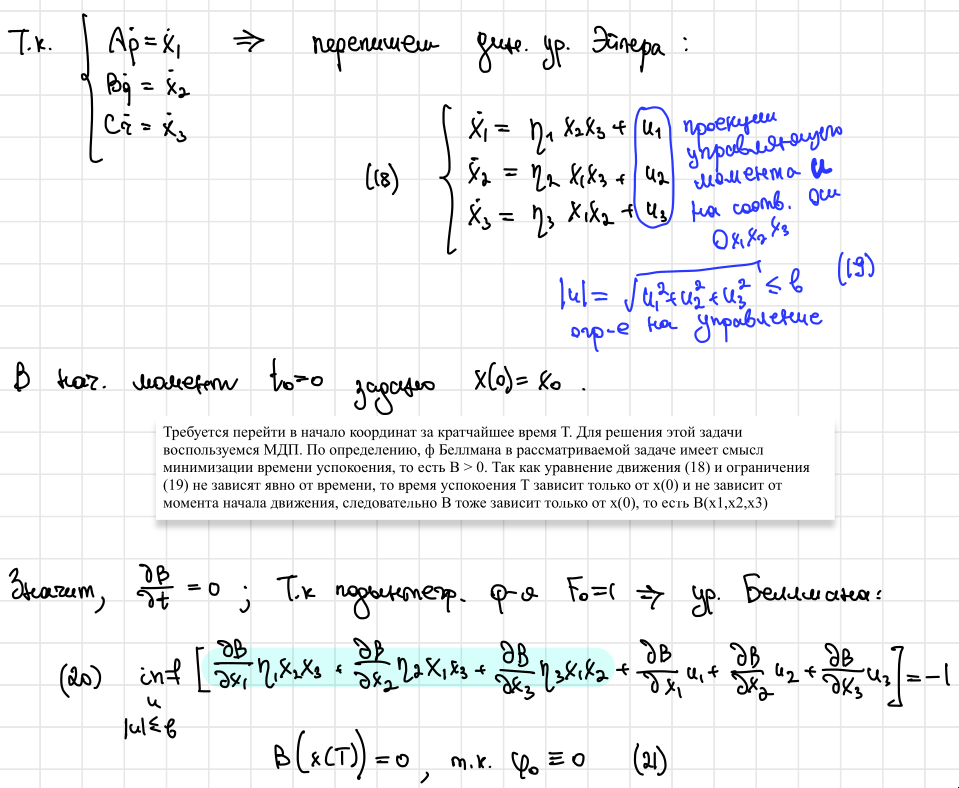 Т.к. { Aṗ = ẋ₁ ⇒ перепишем дин. ур. Эйлера :
Bq̇ = ẋ₂
Cṙ = ẋ₃
(18) { ẋ₁ = η₁ x₂x₃ + u₁
ẋ₂ = η₂ x₁x₃ + u₂
ẋ₃ = η₃ x₁x₂ + u₃
проекции
управляющего
момента u
на соотв. оси
Ox₁x₂x₃
|u| = √(u₁² + u₂² + u₃²) ≤ b (19)
огр-е на управление
В нач. момент t₀=0 задано x(0) = x₀ .
Требуется перейти в начало координат за кратчайшее время T. Для решения этой задачи
воспользуемся МДП. По определению, ф Беллмана в рассматриваемой задаче имеет смысл
минимизации времени успокоения, то есть B > 0. Так как уравнение движения (18) и ограничения
(19) не зависят явно от времени, то время успокоения T зависит только от x(0) и не зависит от
момента начала движения, следовательно B тоже зависит только от x(0), то есть B(x1,x2,x3)
Значит, ∂B/∂t = 0 ; Т.к подынтегр. ф-я F₀=1 ⇒ ур. Беллмана:
(20) inf [ ∂B/∂x₁ η₁x₂x₃ + ∂B/∂x₂ η₂x₁x₃ + ∂B/∂x₃ η₃x₁x₂ + ∂B/∂x₁ u₁ + ∂B/∂x₂ u₂ + ∂B/∂x₃ u₃ ] = -1
u
|u|≤b
B(x(T)) = 0 , т.к. φ₀ ≡ 0 (21)